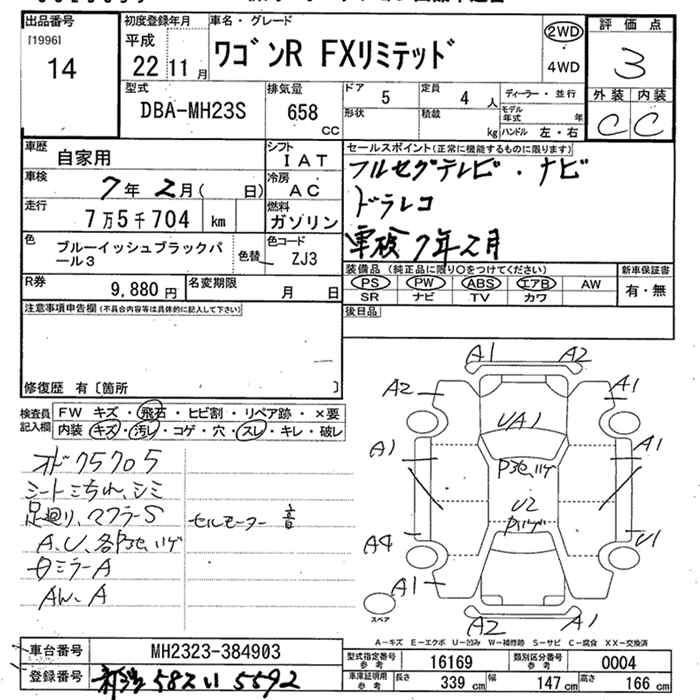 出品番号
[1996]
14
初度登録年月
平成
22 11 月
車名・グレード
ワゴンR FXリミテッド
2WD
4WD
評価点
3
外装 内装
C C
型式
DBA-MH23S
排気量
658 CC
ドア
5
定員
4 人
ディーラー・並行
形状
積載
kg
モデル年式 年
ハンドル 左・右
車歴
自家用
シフト
IAT
セールスポイント(正常に機能するものに限ります)
車検
7年2月( 日)
冷房
AC
フルセグテレビ・ナビ
ドラレコ
車検7年2月
走行
7万5千704 km
燃料
ガソリン
色
ブルーイッシュブラックパール3
色替
色コード
ZJ3
装備品(純正品に限り○をつけてください)
新車保証書
PS PW ABS エアB AW
SR ナビ TV カワ
有・無
R券
9,880 円
名変期限
月 日
後日品
注意事項申告欄(不具合内容等は具体的に記入して下さい)
修復歴 有〔箇所 〕
検査員記入欄
FW キズ・飛石・ヒビ割・リペア跡・×要
内装 キズ・汚レ・コゲ・穴・スレ・キレ・破レ
オド75705
シートこちれ、シミ
足廻り、マフラーS
セルモーター 音
A、U、各
ミラーA
AW、A
A1 A2
A2 A1
UA1
A1 A1
U2
A4 U1
A1
A2 A1
スペア
A－キズ E－エクボ U－凹み W－補修跡 S－サビ C－腐食 XX－交換済
車台番号
MH2323-384903
型式指定番号 参考
16169
類別区分番号 参考
0004
登録番号
582 い 5592
車庫証明用 参考
長さ 339 cm
幅 147 cm
高さ 166 cm